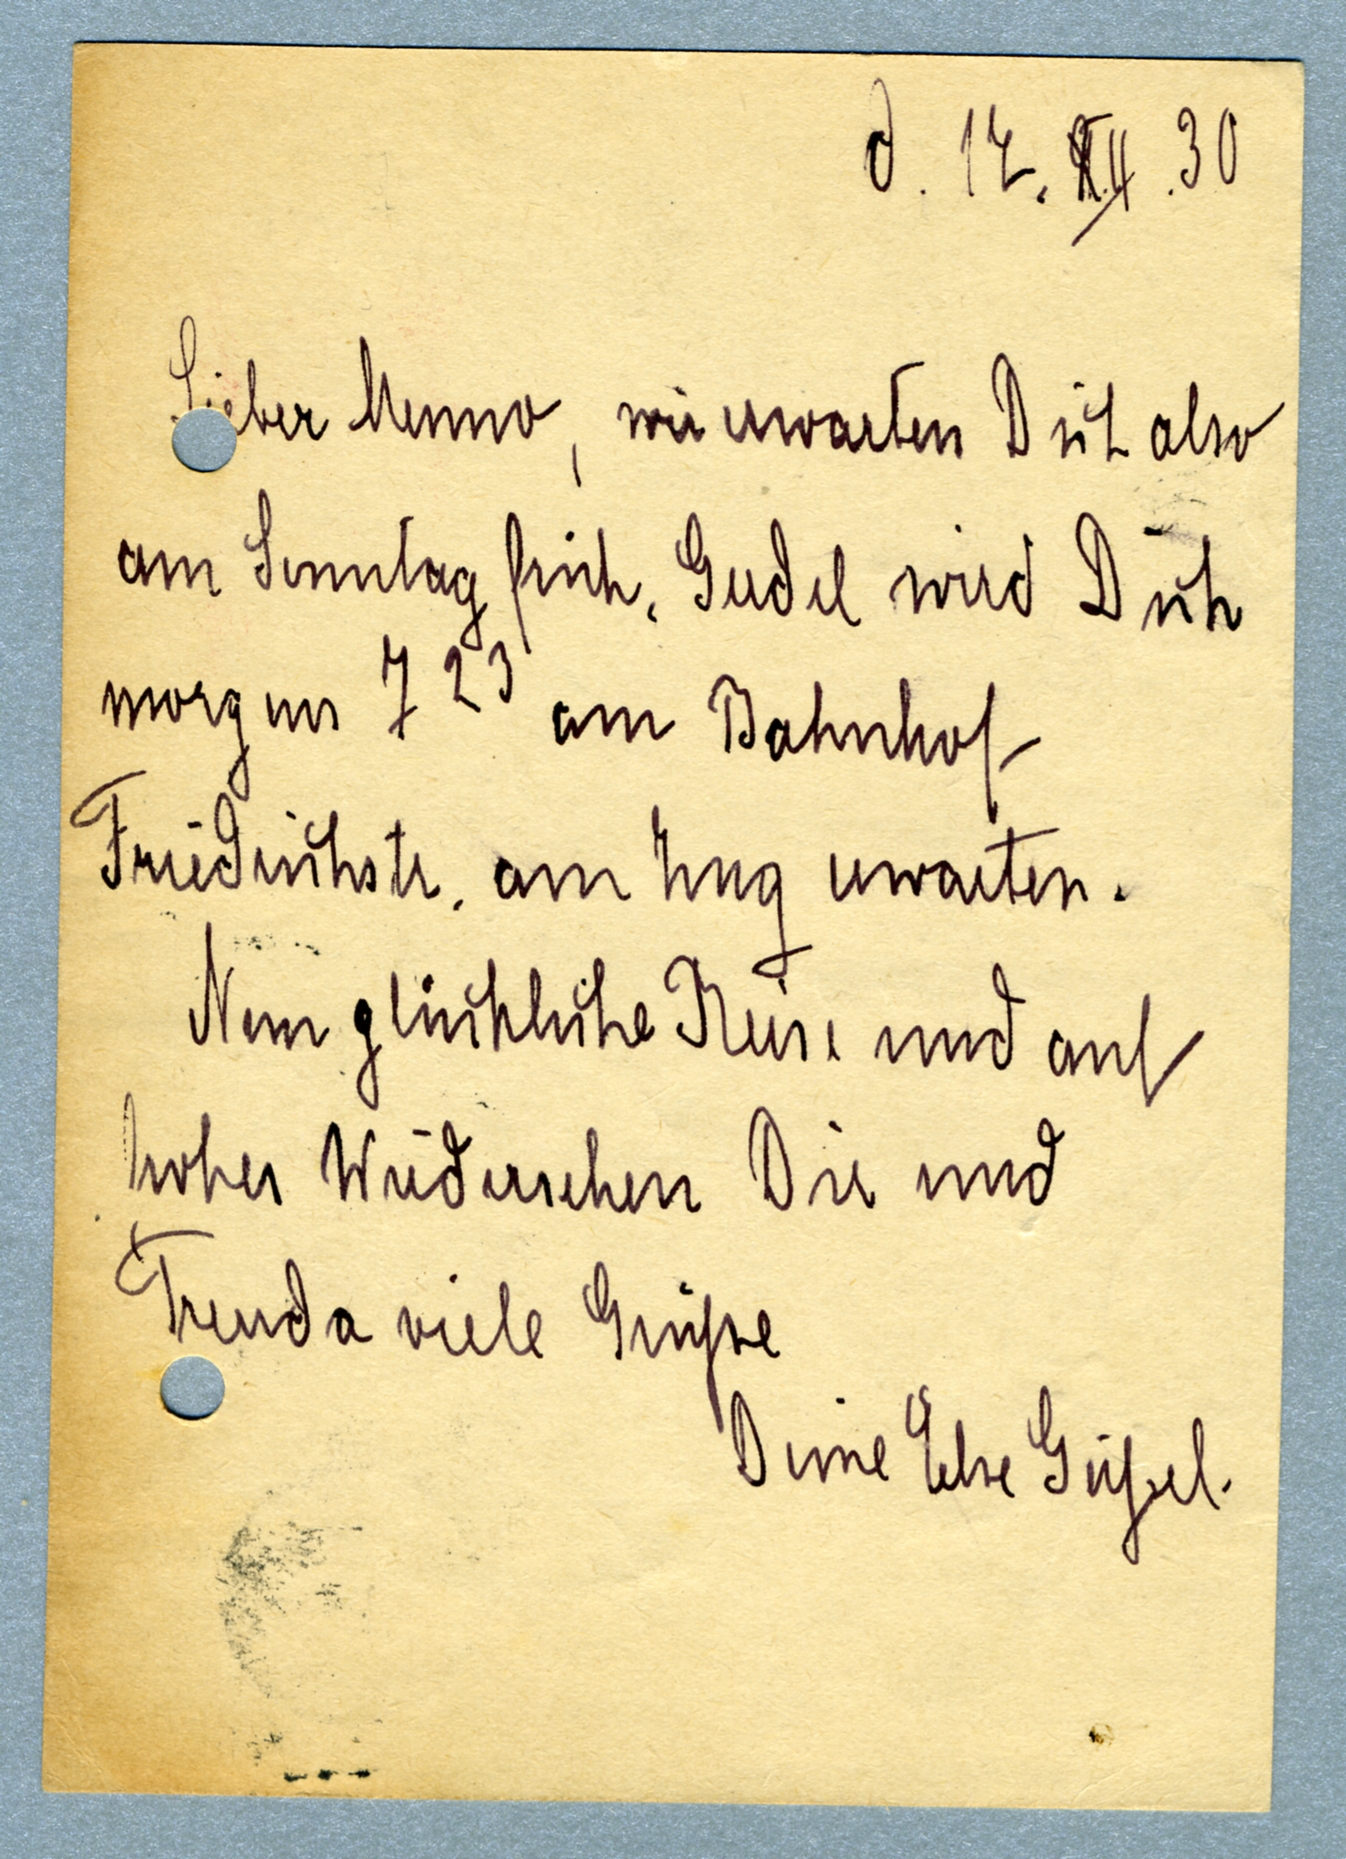 d. 17. XII. 30
Lieber Menno, wir erwarten Dich also
am Sonntag früh. Gudel wird Dich
morgens 7 23 am Bahnhof
Friedrichstr. am Zug erwarten.
Nun glückliche Reise und auf
frohes Wiedersehen Dir und
Freuda viele Grüsse
Deine Else